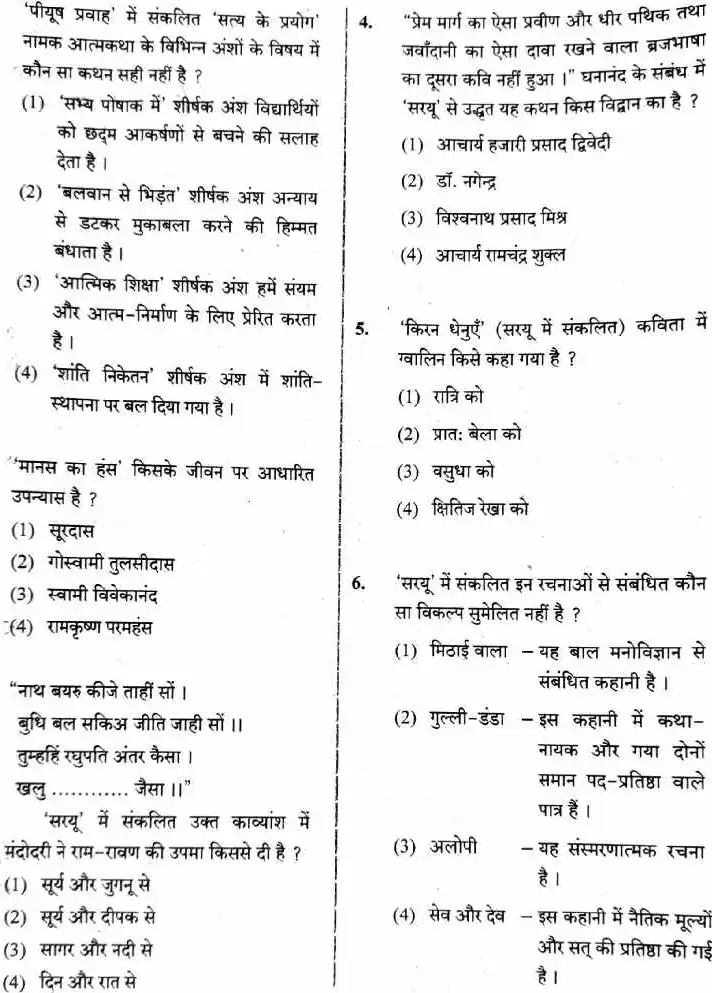 'पीयूष प्रवाह' में संकलित 'सत्य के प्रयोग'
नामक आत्मकथा के विभिन्न अंशों के विषय में
कौन सा कथन सही नहीं है ?
(1) 'सभ्य पोषाक में' शीर्षक अंश विद्यार्थियों
को छद्म आकर्षणों से बचने की सलाह
देता है ।
(2) 'बलवान से भिड़ंत' शीर्षक अंश अन्याय
से डटकर मुकाबला करने की हिम्मत
बंधाता है ।
(3) 'आत्मिक शिक्षा' शीर्षक अंश हमें संयम
और आत्म-निर्माण के लिए प्रेरित करता
है ।
(4) 'शांति निकेतन' शीर्षक अंश में शांति-
स्थापना पर बल दिया गया है ।
'मानस का हंस' किसके जीवन पर आधारित
उपन्यास है ?
(1) सूरदास
(2) गोस्वामी तुलसीदास
(3) स्वामी विवेकानंद
(4) रामकृष्ण परमहंस
"नाथ बयरु कीजे ताहीं सों ।
बुधि बल सकिअ जीति जाही सों ।।
तुम्हहिं रघुपति अंतर कैसा ।
खलु ............ जैसा ।।"
'सरयू' में संकलित उक्त काव्यांश में
मंदोदरी ने राम-रावण की उपमा किससे दी है ?
(1) सूर्य और जुगनू से
(2) सूर्य और दीपक से
(3) सागर और नदी से
(4) दिन और रात से
4. "प्रेम मार्ग का ऐसा प्रवीण और धीर पथिक तथा
जवाँदानी का ऐसा दावा रखने वाला ब्रजभाषा
का दूसरा कवि नहीं हुआ ।" घनानंद के संबंध में
'सरयू' से उद्धृत यह कथन किस विद्वान का है ?
(1) आचार्य हजारी प्रसाद द्विवेदी
(2) डॉ. नगेन्द्र
(3) विश्वनाथ प्रसाद मिश्र
(4) आचार्य रामचंद्र शुक्ल
5. 'किरन धेनुएँ' (सरयू में संकलित) कविता में
ग्वालिन किसे कहा गया है ?
(1) रात्रि को
(2) प्रात: बेला को
(3) वसुधा को
(4) क्षितिज रेखा को
6. 'सरयू' में संकलित इन रचनाओं से संबंधित कौन
सा विकल्प सुमेलित नहीं है ?
(1) मिठाई वाला – यह बाल मनोविज्ञान से
संबंधित कहानी है ।
(2) गुल्ली-डंडा – इस कहानी में कथा-
नायक और गया दोनों
समान पद-प्रतिष्ठा वाले
पात्र हैं ।
(3) अलोपी – यह संस्मरणात्मक रचना
है ।
(4) सेव और देव – इस कहानी में नैतिक मूल्यों
और सत् की प्रतिष्ठा की गई
है ।